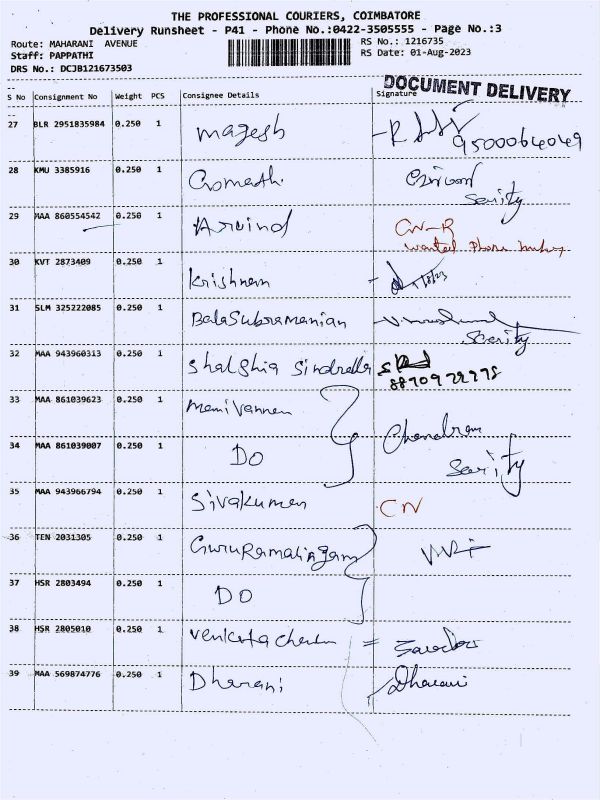 THE PROFESSIONAL COURIERS, COIMBATORE
Delivery Runsheet - P41 - Phone No.:0422-3505555 - Page No.:3
Route: MAHARANI AVENUE
RS No.: 1216735
Staff: PAPPATHI
RS Date: 01-Aug-2023
DRS No.: DCJB121673503
DOCUMENT DELIVERY
S No Consignment No Weight PCS Consignee Details Signature
27 BLR 2951835984 0.250 1 Magesh
9500064049
28 KMU 3385916 0.250 1 Gomathi
29 MAA 860554542 0.250 1 Arvind CN-R
wanted Phone number
30 KVT 2873409 0.250 1 Krishnan
31 SLM 325222085 0.250 1 BalaSubramanian
32 MAA 943960313 0.250 1
33 MAA 861039623 0.250 1 Manivannan
34 MAA 861039007 0.250 1 DO Chandran
35 MAA 943966794 0.250 1 Sivakumar CN
36 TEN 2031305 0.250 1 GuruRamalingam
37 HSR 2803494 0.250 1 DO
38 HSR 2805010 0.250 1
39 MAA 569874776 0.250 1 Dharani Dharani